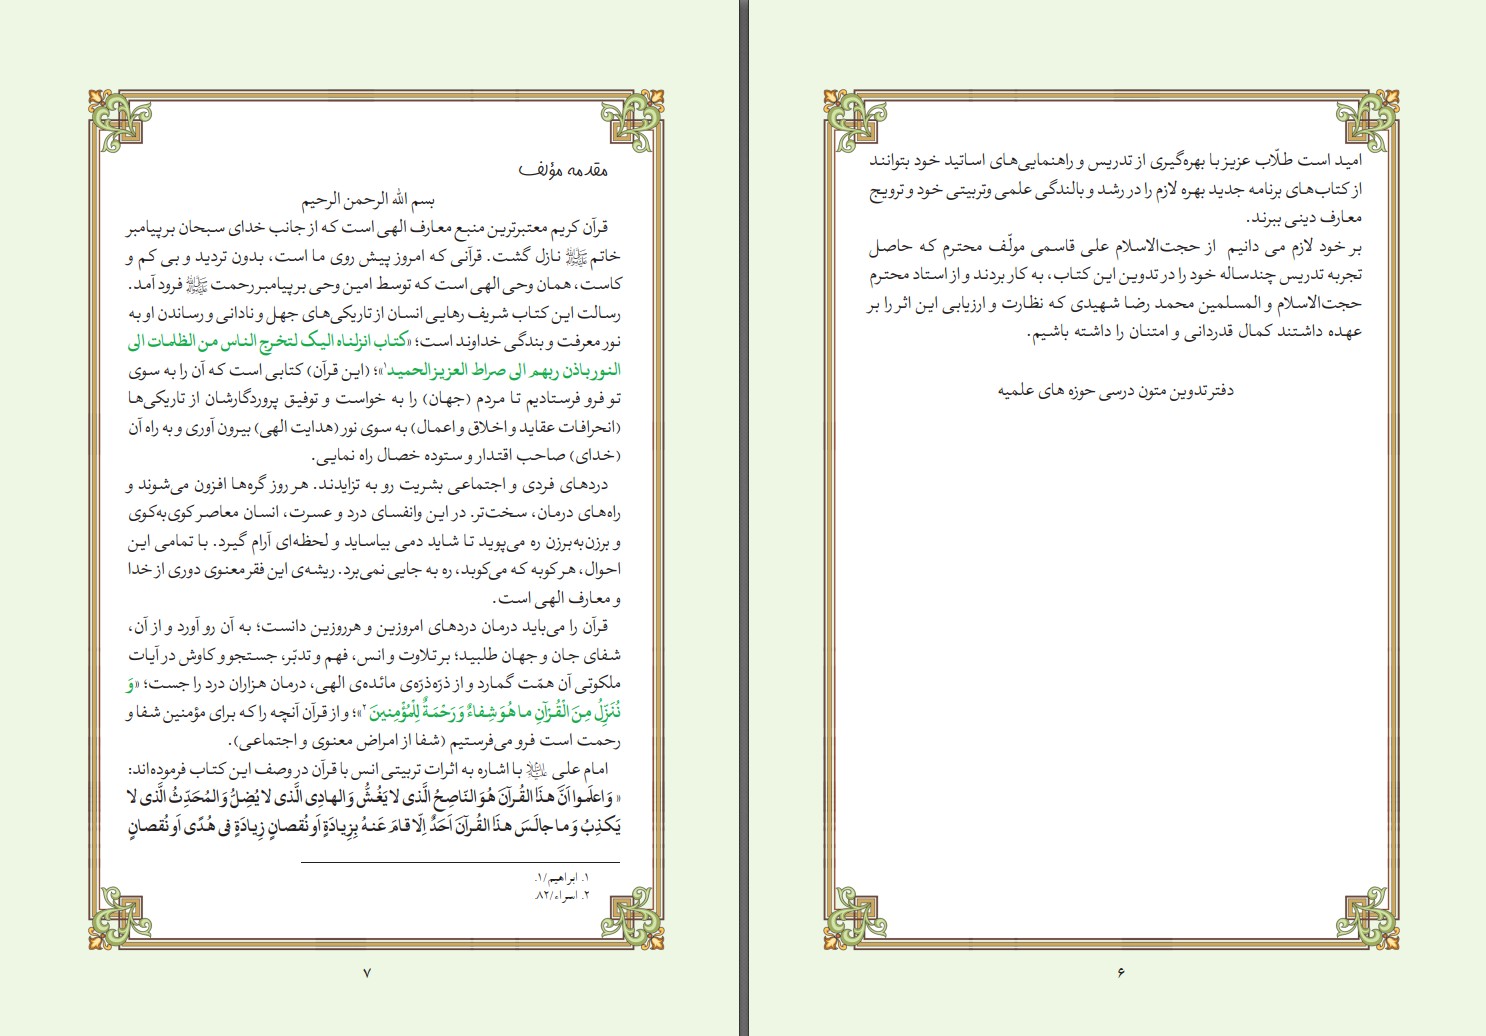 امید است طلّاب عزیز با بهره‌گیری از تدریس و راهنمایی‌های اساتید خود بتوانند
از کتاب‌های برنامه جدید بهره لازم را در رشد و بالندگی علمی وتربیتی خود و ترویج
معارف دینی ببرند.
بر خود لازم می دانیم از حجت‌الاسلام علی قاسمی مولّف محترم که حاصل
تجربه تدریس چندساله خود را در تدوین این کتاب، به کار بردند و از استاد محترم
حجت‌الاسلام و المسلمین محمد رضا شهیدی که نظارت و ارزیابی این اثر را بر
عهده داشتند کمال قدردانی و امتنان را داشته باشیم.
دفتر تدوین متون درسی حوزه های علمیه
۶
مقدمه مؤلف
بسم الله الرحمن الرحیم
قرآن کریم معتبرترین منبع معارف الهی است که از جانب خدای سبحان بر پیامبر
خاتم ﷺ نازل گشت. قرآنی که امروز پیش روی ما است، بدون تردید و بی کم و
کاست، همان وحی الهی است که توسط امین وحی بر پیامبر رحمت ﷺ فرود آمد.
رسالت این کتاب شریف رهایی انسان از تاریکی‌های جهل و نادانی و رساندن او به
نور معرفت و بندگی خداوند است؛ «کتاب انزلناه الیک لتخرج الناس من الظلمات الی
النور باذن ربهم الی صراط العزیز الحمید۱»؛ (این قرآن) کتابی است که آن را به سوی
تو فرو فرستادیم تا مردم (جهان) را به خواست و توفیق پروردگارشان از تاریکی‌ها
(انحرافات عقاید و اخلاق و اعمال) به سوی نور (هدایت الهی) بیرون آوری و به راه آن
(خدای) صاحب اقتدار و ستوده خصال راه نمایی.
دردهای فردی و اجتماعی بشریت رو به تزایدند. هر روز گره‌ها افزون می‌شوند و
راه‌های درمان، سخت‌تر. در این وانفسای درد و عسرت، انسان معاصر کوی‌به‌کوی
و برزن‌به‌برزن ره می‌پوید تا شاید دمی بیاساید و لحظه‌ای آرام گیرد. با تمامی این
احوال، هر کوبه که می‌کوبد، ره به جایی نمی‌برد. ریشه‌ی این فقر معنوی دوری از خدا
و معارف الهی است.
قرآن را می‌باید درمان دردهای امروزین و هرروزین دانست؛ به آن رو آورد و از آن،
شفای جان و جهان طلبید؛ بر تلاوت و انس، فهم و تدبّر، جستجو و کاوش در آیات
ملکوتی آن همّت گمارد و از ذرّه‌ذرّه‌ی مائده‌ی الهی، درمان هزاران درد را جست؛ «وَ
نُنَزِّلُ مِنَ الْقُرْآنِ ما هُوَ شِفاءٌ وَ رَحْمَةٌ لِلْمُؤْمِنینَ۲»؛ و از قرآن آنچه را که برای مؤمنین شفا و
رحمت است فرو می‌فرستیم (شفا از امراض معنوی و اجتماعی).
امام علی علیه‌السلام با اشاره به اثرات تربیتی انس با قرآن در وصف این کتاب فرموده‌اند:
« وَ اعلَموا اَنَّ هذَا القُرآنَ هُوَ النّاصِحُ الَّذی لا یَغُشُّ وَ الهادِی الَّذی لا یُضِلُّ وَ المُحَدِّثُ الَّذی لا
یَکذِبُ وَ ما جالَسَ هذَا القُرآنَ اَحَدٌ اِلّا قامَ عَنهُ بِزِیادَةٍ اَو نُقصانٍ زِیادَةٍ فی هُدًی اَو نُقصانٍ
۱. ابراهیم/۱.
۲. اسراء/۸۲
۷